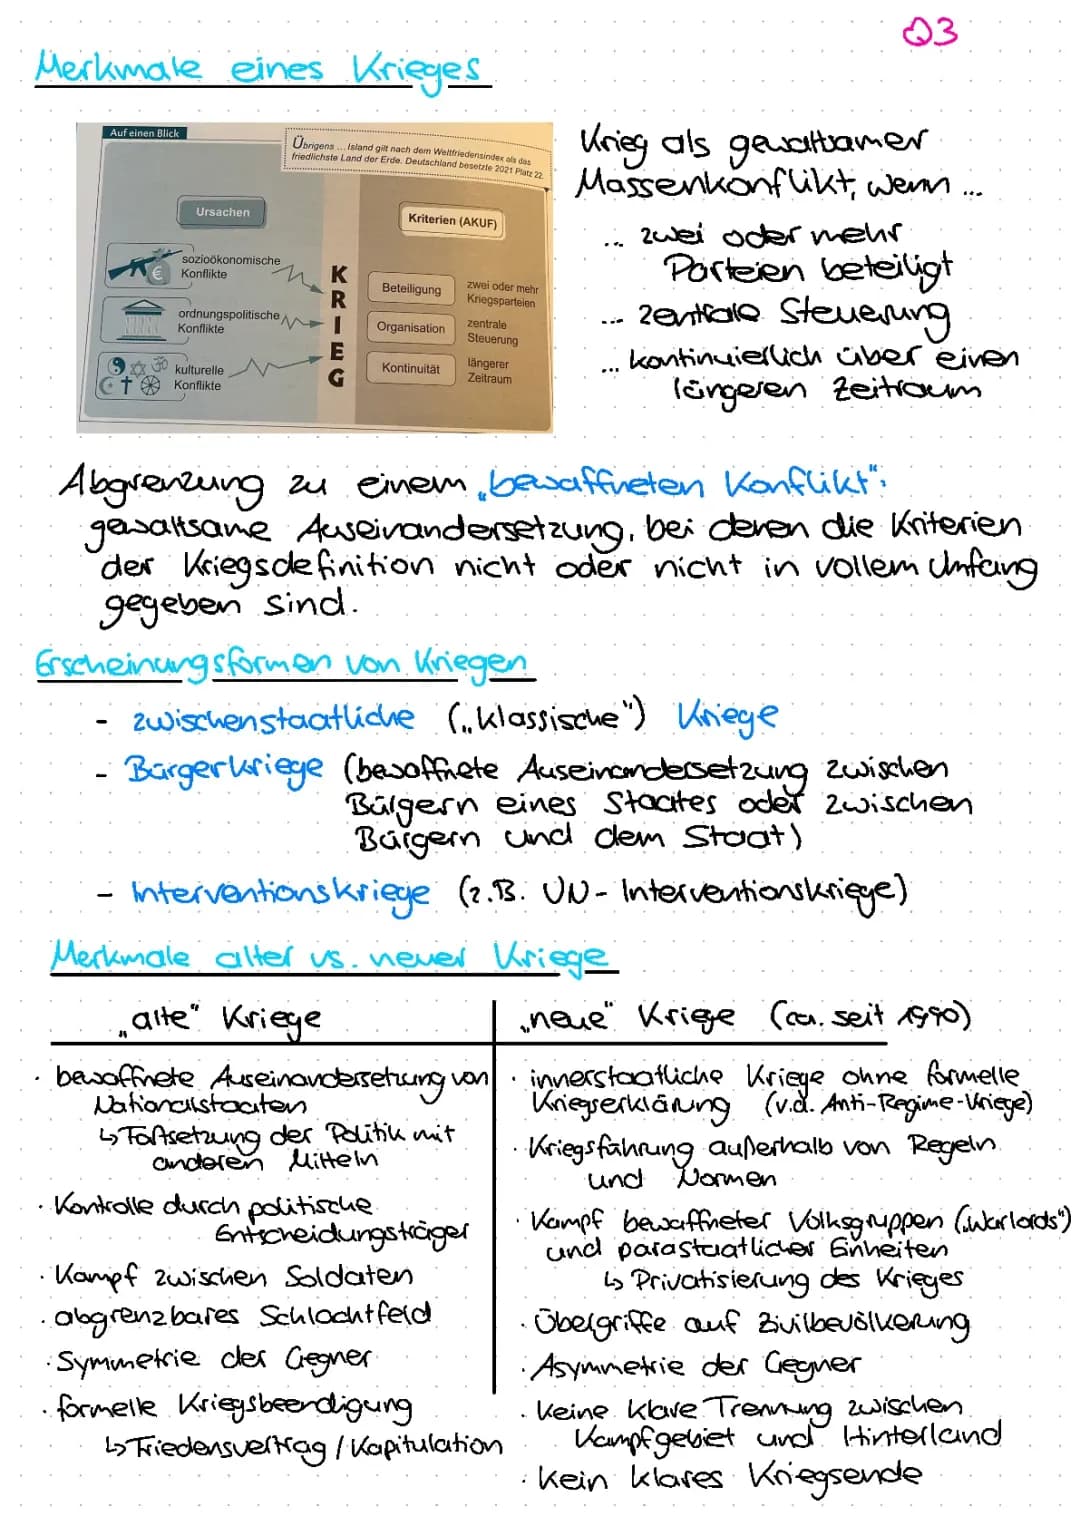 Q3
Merkmale eines Krieges
Auf einen Blick
Übrigens ... Island gilt nach dem Weltfriedensindex als das
friedlichste Land der Erde. Deutschland besetzte 2021 Platz 22.
Ursachen
sozioökonomische
Konflikte
ordnungspolitische
Konflikte
kulturelle
Konflikte
KRIEG
Kriterien (AKUF)
Beteiligung
zwei oder mehr
Kriegsparteien
Organisation
zentrale
Steuerung
Kontinuität
längerer
Zeitraum
Krieg als gewaltsamer
Massenkonflikt, wenn ...
... zwei oder mehr
Parteien beteiligt
... zentrale Steuerung
... kontinuierlich über einen
längeren Zeitraum
Abgrenzung zu einem „bewaffneten Konflikt":
gewaltsame Auseinandersetzung, bei denen die Kriterien
der Kriegsdefinition nicht oder nicht in vollem Umfang
gegeben sind.
Erscheinungsformen von Kriegen
- zwischenstaatliche („klassische") Kriege
- Bürgerkriege (bewaffnete Auseinandersetzung zwischen
Bürgern eines Staates oder zwischen
Bürgern und dem Staat)
- Interventionskriege (z.B. UN-Interventionskriege)
Merkmale alter vs. neuer Kriege
„alte" Kriege
· bewaffnete Auseinandersetzung von
Nationalstaaten
↳ Fortsetzung der Politik mit
anderen Mitteln
· Kontrolle durch politische
Entscheidungsträger
· Kampf zwischen Soldaten
· abgrenzbares Schlachtfeld
· Symmetrie der Gegner
· formelle Kriegsbeendigung
↳ Friedensvertrag / Kapitulation
„neue" Kriege (ca. seit 1990)
· innerstaatliche Kriege ohne formelle
Kriegserklärung (v.a. Anti-Regime-Kriege)
· Kriegsführung außerhalb von Regeln
und Normen
· Kampf bewaffneter Volksgruppen („Warlords")
und parastaatlicher Einheiten
↳ Privatisierung des Krieges
· Übergriffe auf Zivilbevölkerung
· Asymmetrie der Gegner
· Keine klare Trennung zwischen
Kampfgebiet und Hinterland
· kein klares Kriegsende